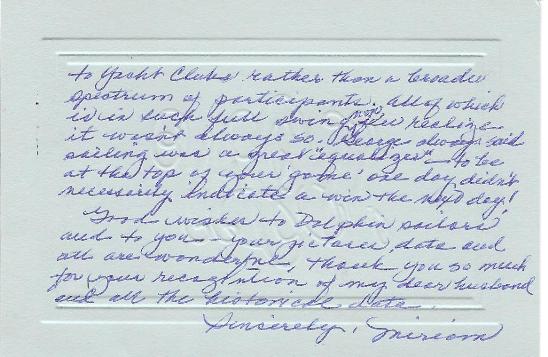 to Yacht Clubs rather than a broader
spectrum of participants. All of which
is in such full swing now few realize
it wasn't always so. George always said
sailing was a great "equalizer" - to be
at the top of your 'game' one day didn't
necessarily indicate a win the next day!
Good wishes to Dolphin sailors
and to you - your pictures, data and
all are wonderful, thank you so much
for your recognition of my dear husband
and all the historical data.
Sincerely, Miriam